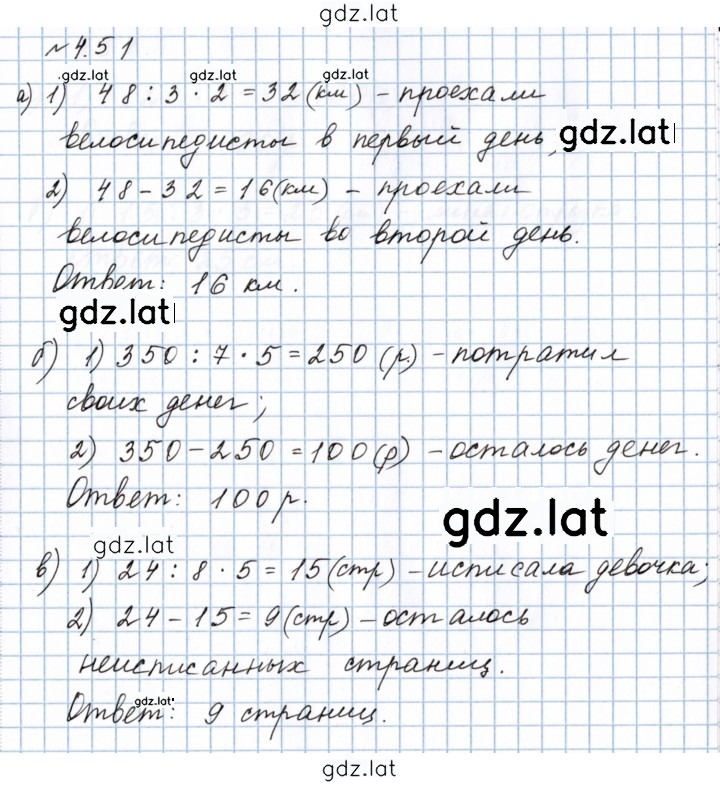 gdz.lat
№ 4.51
gdz.lat gdz.lat gdz.lat
а) 1) 48 : 3 · 2 = 32 (км) – проехали
велосипедисты в первый день, gdz.lat
2) 48 – 32 = 16 (км) – проехали
велосипедисты во второй день.
Ответ: 16 км.
gdz.lat
б) 1) 350 : 7 · 5 = 250 (р.) – потратил
своих денег;
2) 350 – 250 = 100 (р) – осталось денег.
Ответ: 100 р.
gdz.lat
gdz.lat
в) 1) 24 : 8 · 5 = 15 (стр) – исписала девочка;
2) 24 – 15 = 9 (стр) – осталось
неисписанных страниц.
gdz.lat
Ответ: 9 страниц.
gdz.lat